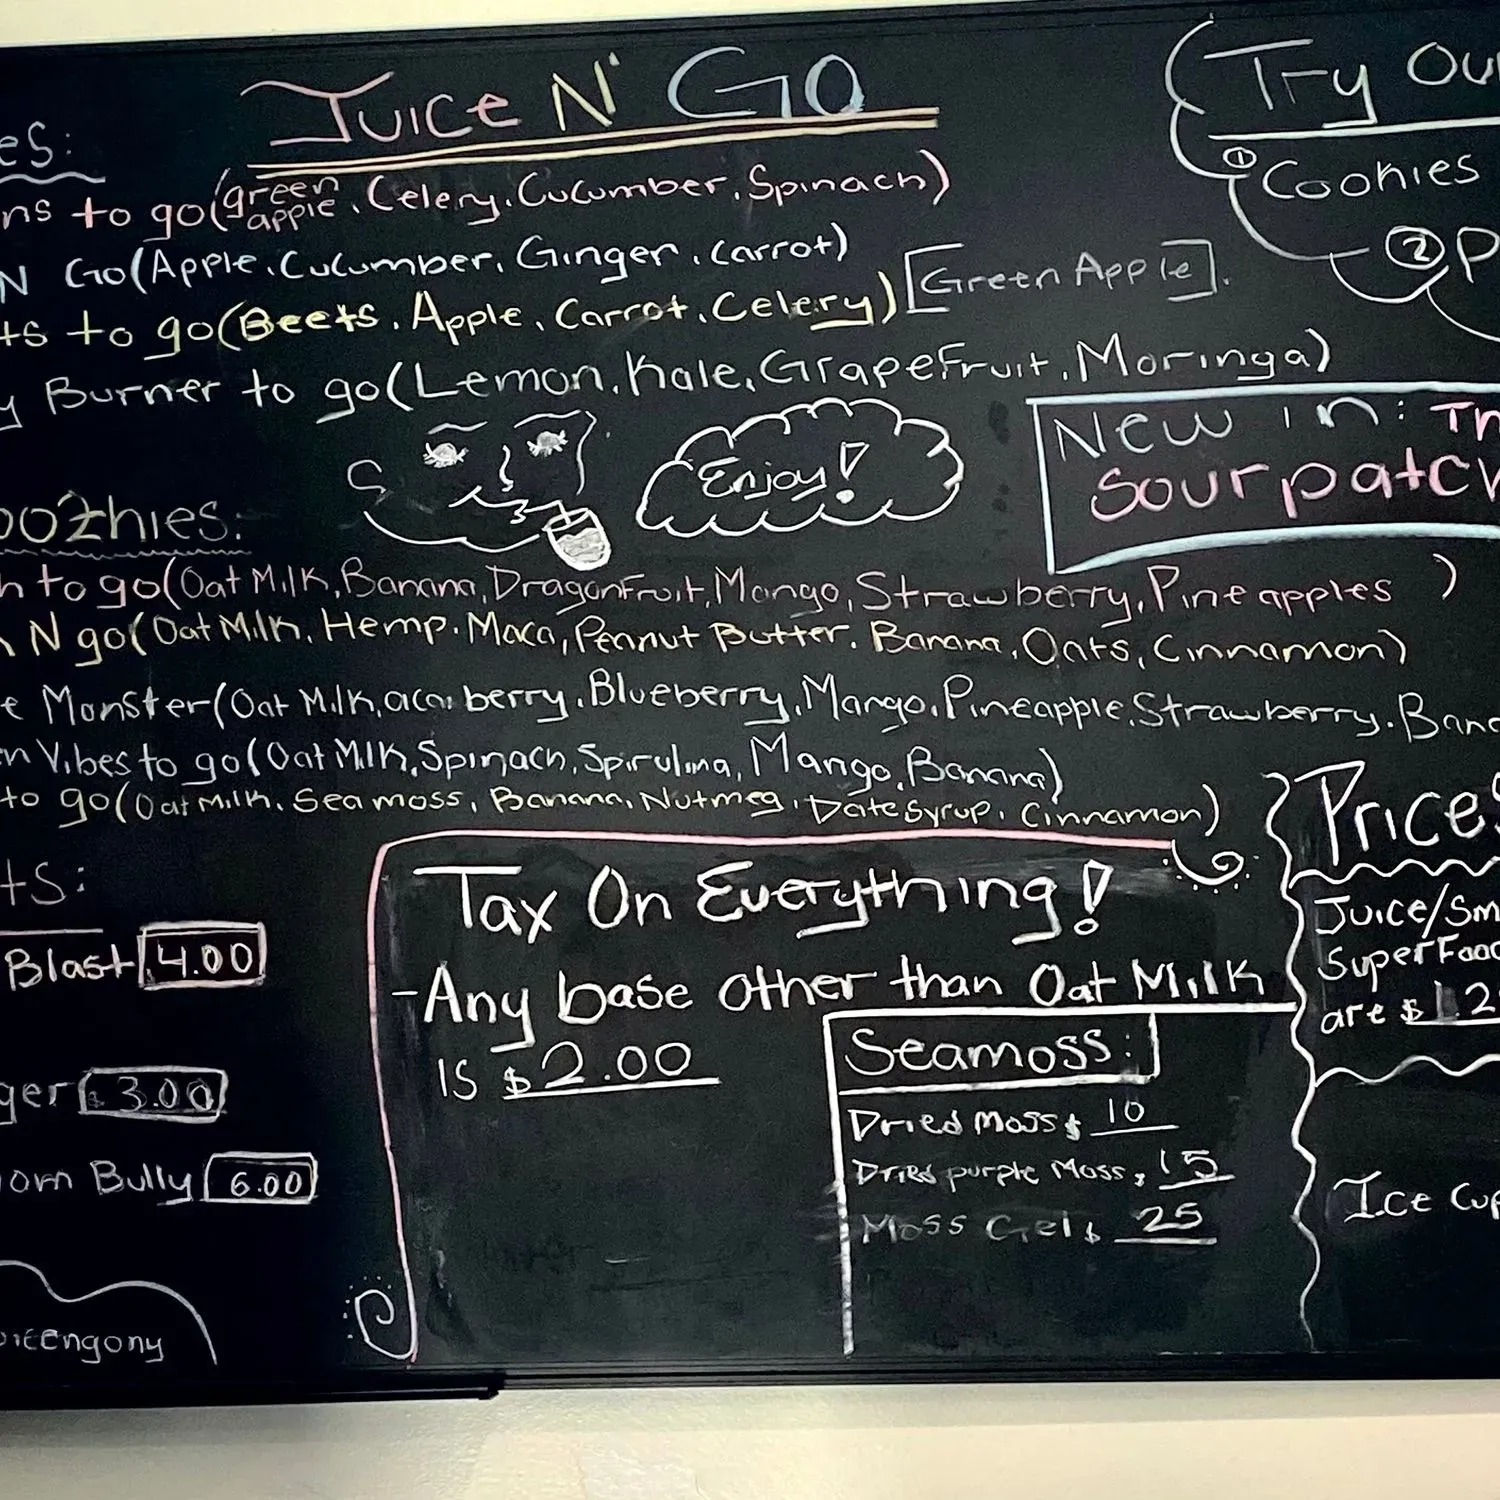 Juice N' Go
Try Our
es:
① Cookies
ns to go (green apple, Celery, Cucumber, Spinach)
② P
N Go (Apple, Cucumber, Ginger, carrot)
ts to go (Beets, Apple, Carrot, Celery) [Green Apple].
y Burner to go (Lemon, Kale, GrapeFruit, Moringa)
New in: Th
Sourpatch
Enjoy!
oothies:
h to go (Oat Milk, Banana, DragonFruit, Mango, Strawberry, Pineapples )
N go (Oat Milk, Hemp, Maca, Peanut Butter, Banana, Oats, Cinnamon)
e Monster (Oat Milk, acai berry, Blueberry, Mango, Pineapple, Strawberry, Bana
n Vibes to go (Oat Milk, Spinach, Spirulina, Mango, Banana)
to go (Oat Milk, Sea moss, Banana, Nutmeg, Date Syrup, Cinnamon)
Prices
ts:
Tax On Everything!
Juice/Sm
Blast 4.00
SuperFood
-Any base other than Oat Milk
are $1.2
Is $2.00
Seamoss:
ger 3.00
Dried Moss $ 10
Dried purple Moss $ 15
om Bully 6.00
Ice Cup
Moss Gel $ 25
uicengony